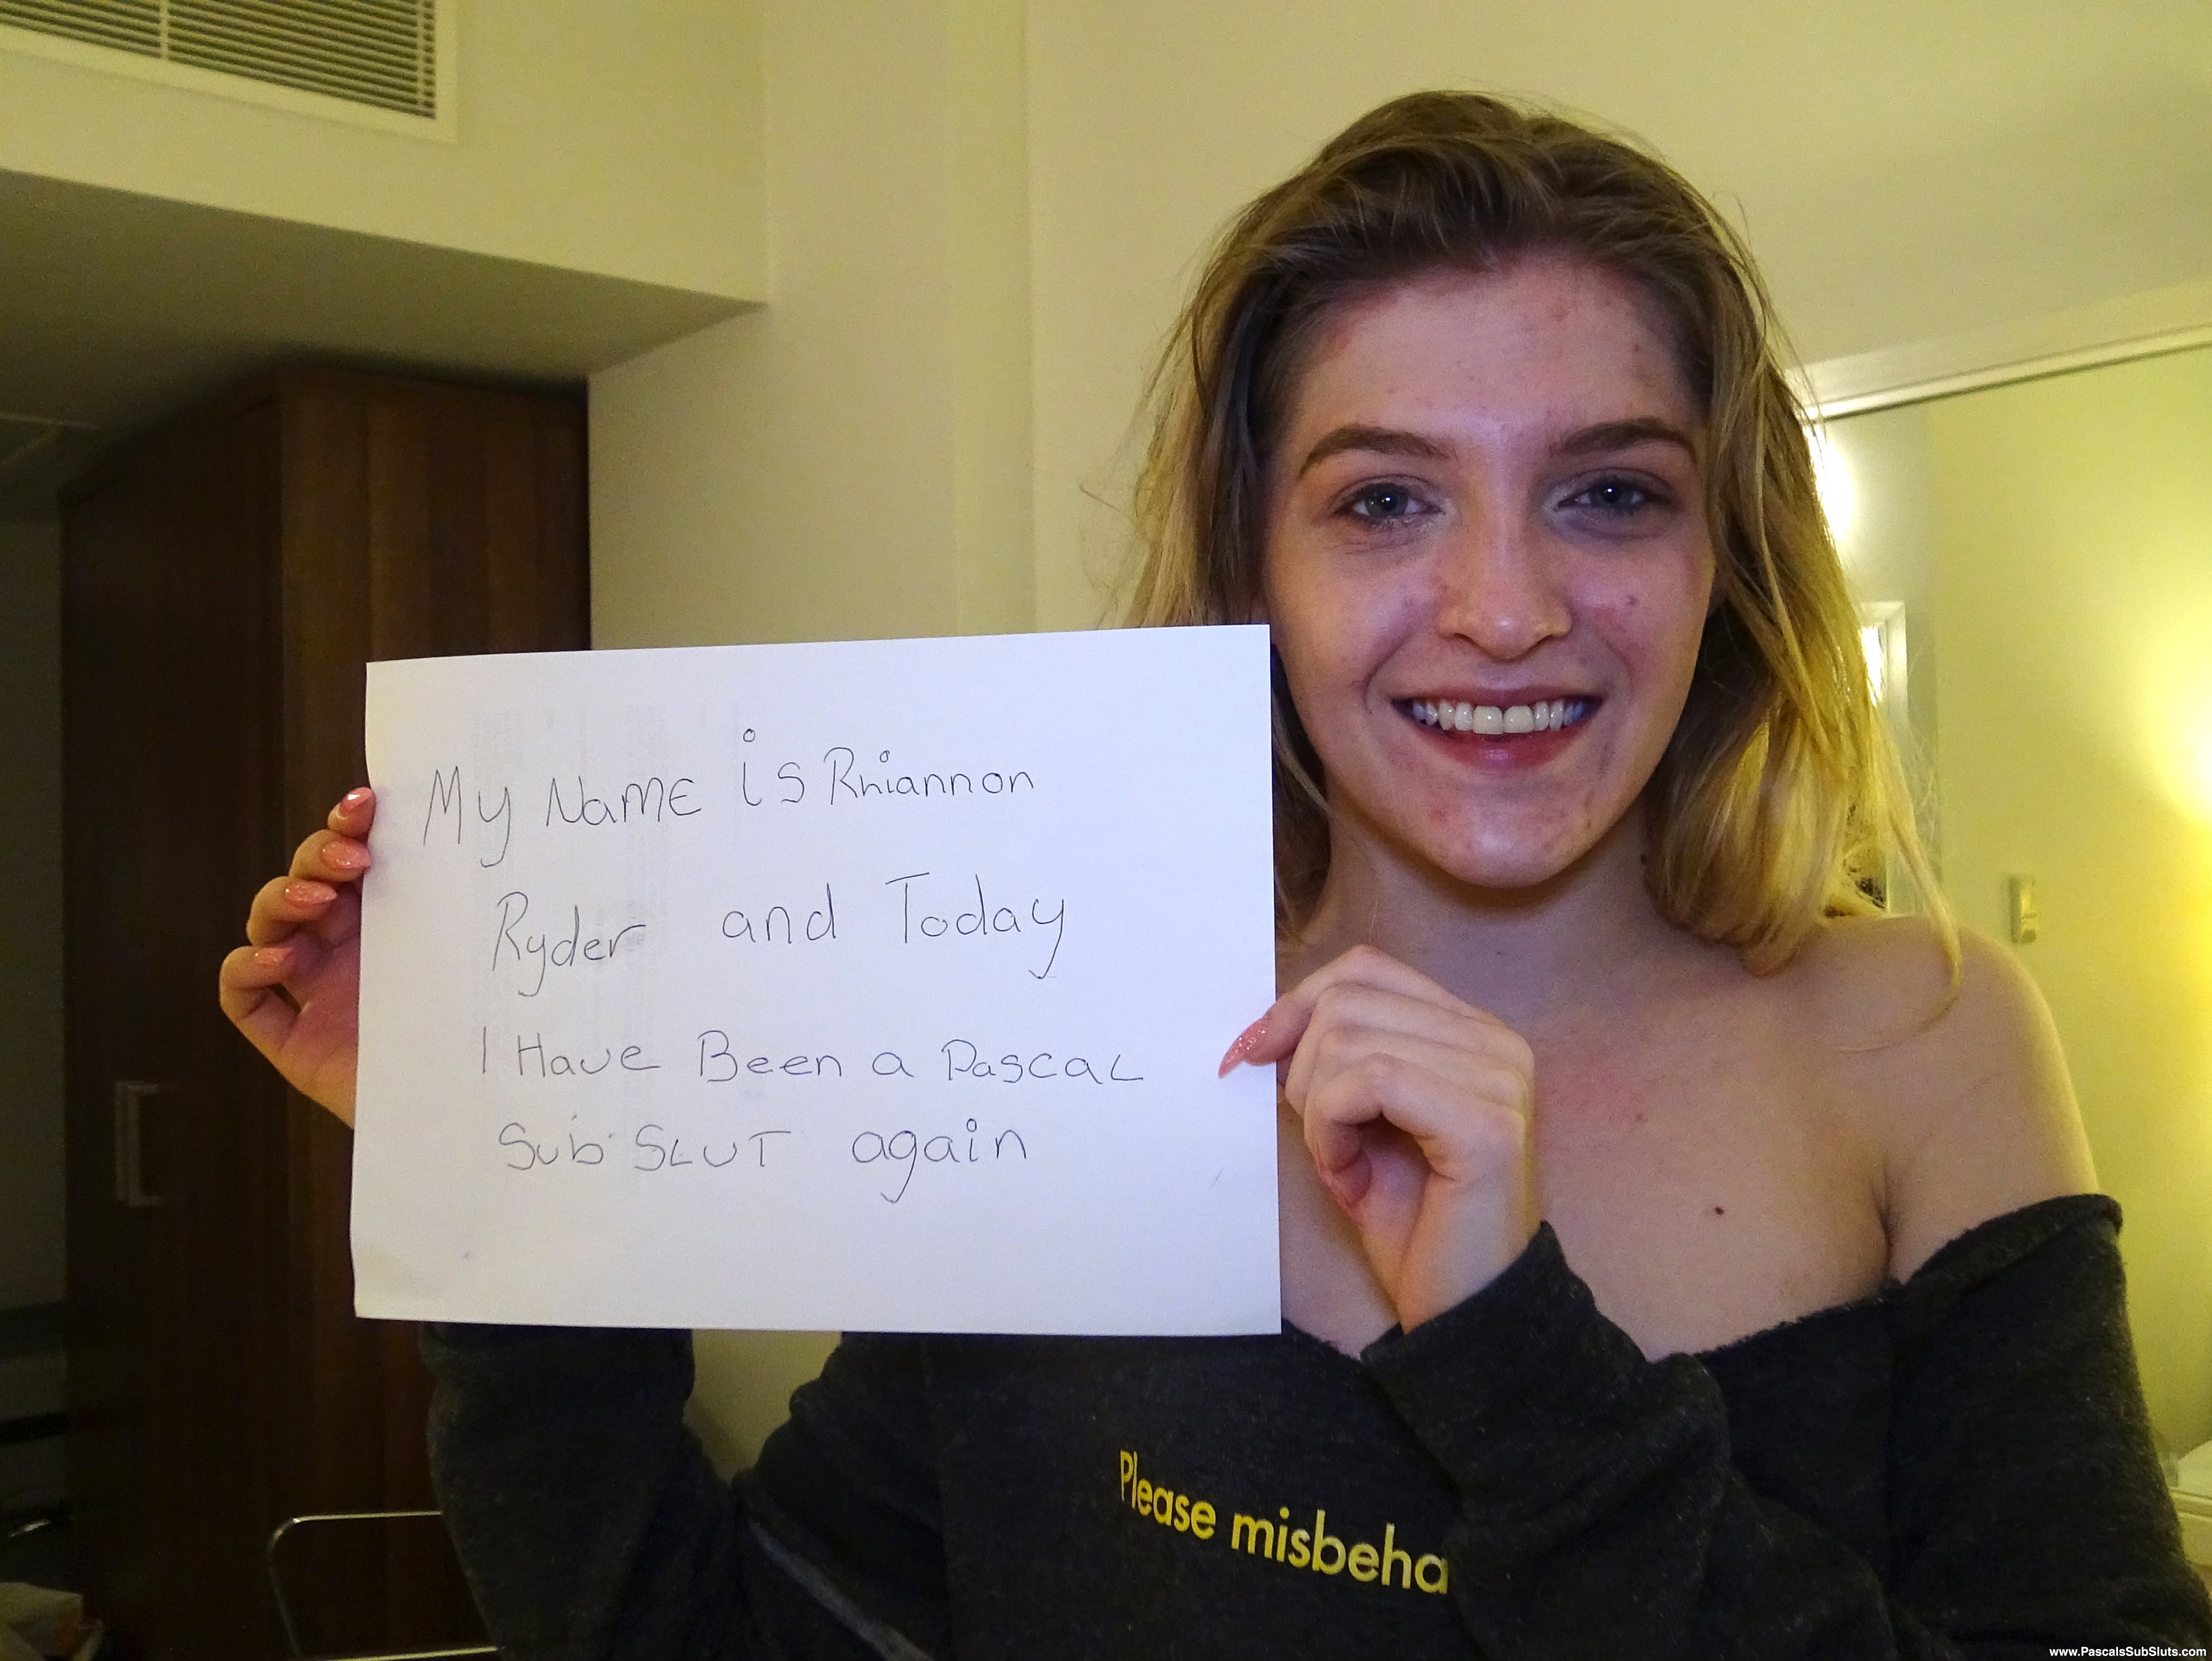 My Name is Rhiannon
Ryder and Today
I Have Been a Pascal
Sub SLUT again
Please misbeha
www.PascalsSubSluts.com